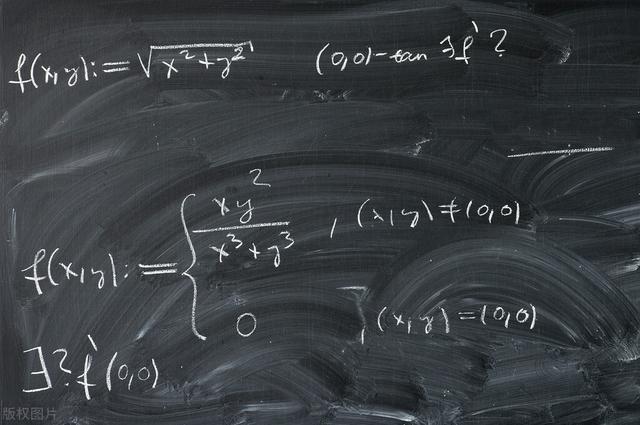 f(x,y):=√x²+y²  (0,0)-tan ∃f' ?
f(x,y):= { xy² / x³+y³ , (x,y)≠(0,0)
0 , (x,y)=(0,0)
∃? f'(0,0)
版权图片